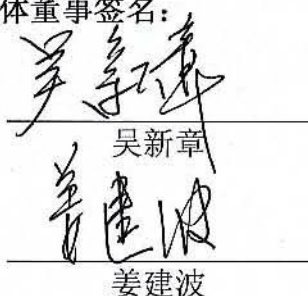 体董事签名：
吴新章
吴新章
姜建波
姜建波